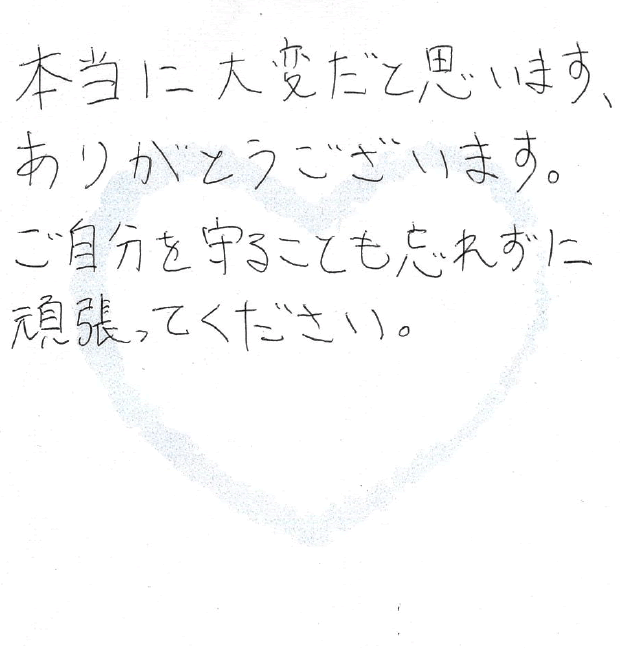 本当に大変だと思います、
ありがとうございます。
ご自分を守ることも忘れずに
頑張ってください。